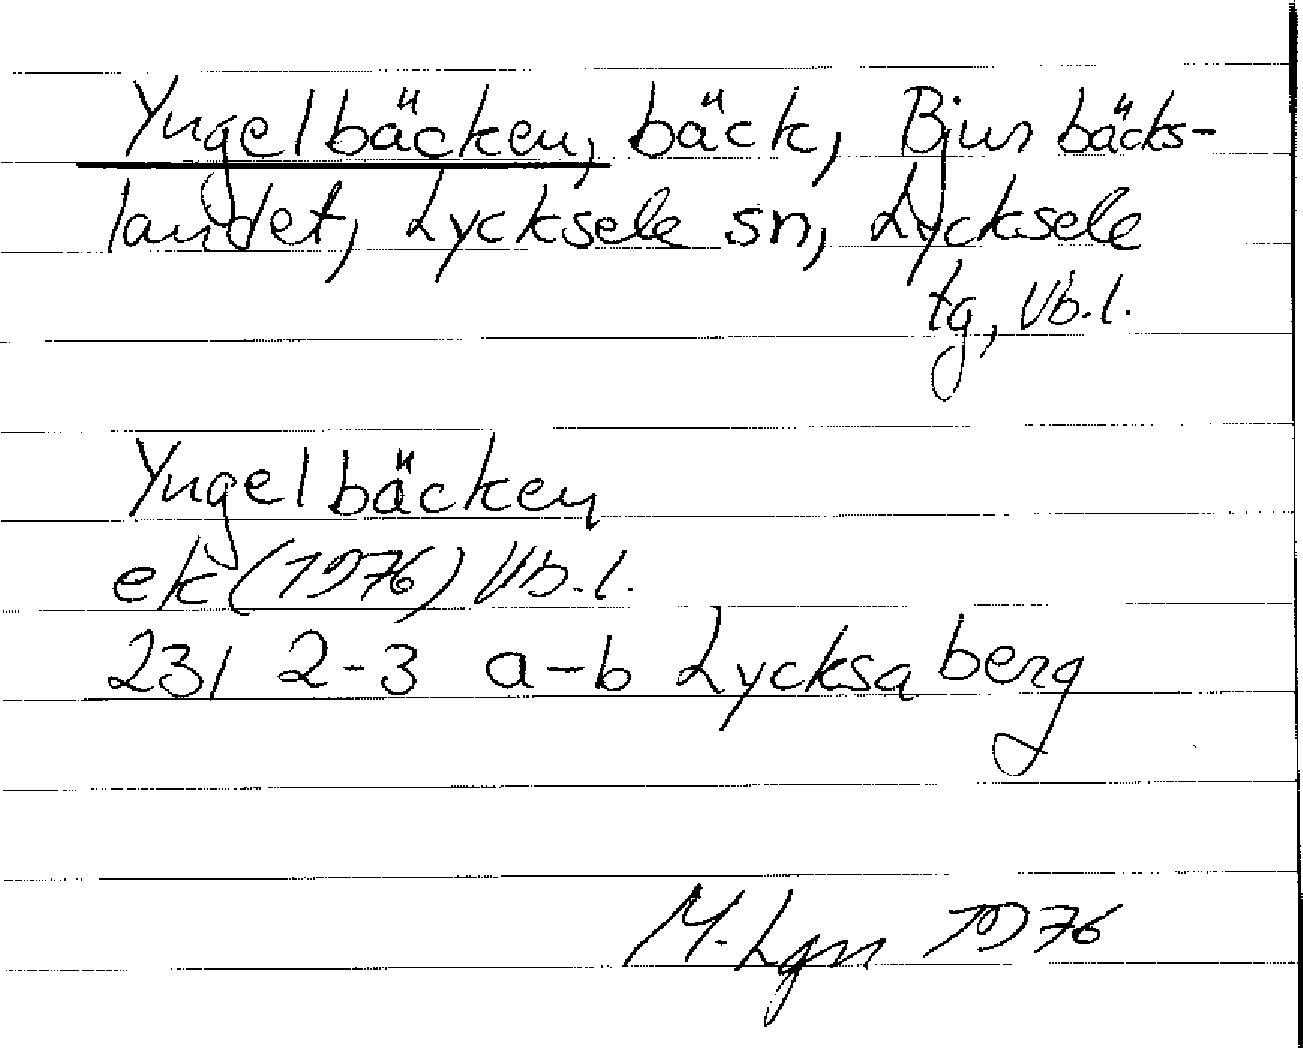 Yngelbäcken, bäck, Bjurbäcks-
landet, Lycksele sn, Lycksele
tg, Vb.l.
Yngelbäcken
ek (1976) Vb.l.
231 2-3 a-b Lycksaberg
M. Lgn 1976